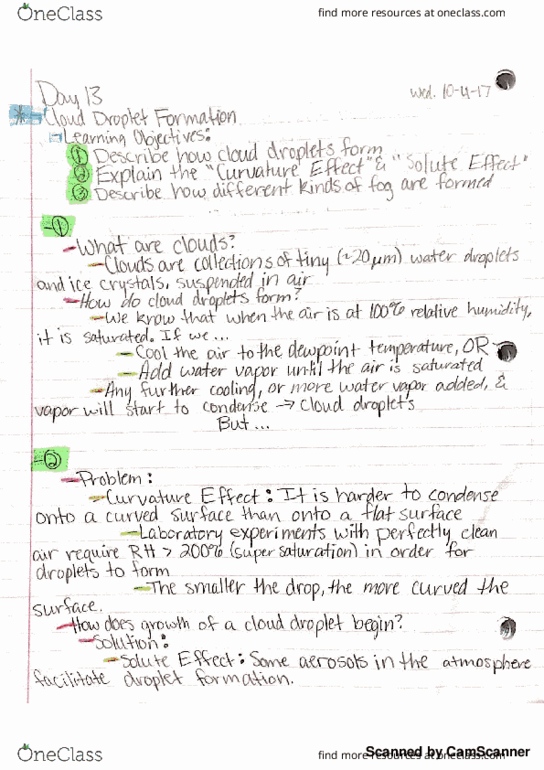 OneClass
find more resources at oneclass.com
Day 13
Wed. 10-4-17
Cloud Droplet Formation
- Learning Objectives:
① Describe how cloud droplets form
② Explain the "Curvature Effect" & "Solute Effect"
③ Describe how different kinds of fog are formed
-①
- What are clouds?
- Clouds are collections of tiny (~20μm) water droplets
and ice crystals, suspended in air
- How do cloud droplets form?
- We know that when the air is at 100% relative humidity,
it is saturated. If we...
- Cool the air to the dewpoint temperature, OR
- Add water vapor until the air is saturated
- Any further cooling, or more water vapor added, &
vapor will start to condense → cloud droplets
But...
-②
- Problem:
- Curvature Effect: It is harder to condense
onto a curved surface than onto a flat surface
- Laboratory experiments with perfectly clean
air require RH > 200% (super saturation) in order for
droplets to form
- The smaller the drop, the more curved the
surface.
- How does growth of a cloud droplet begin?
- Solution:
- Solute Effect: Some aerosols in the atmosphere
facilitate droplet formation.
OneClass
find more resources at oneclass.com
Scanned by CamScanner